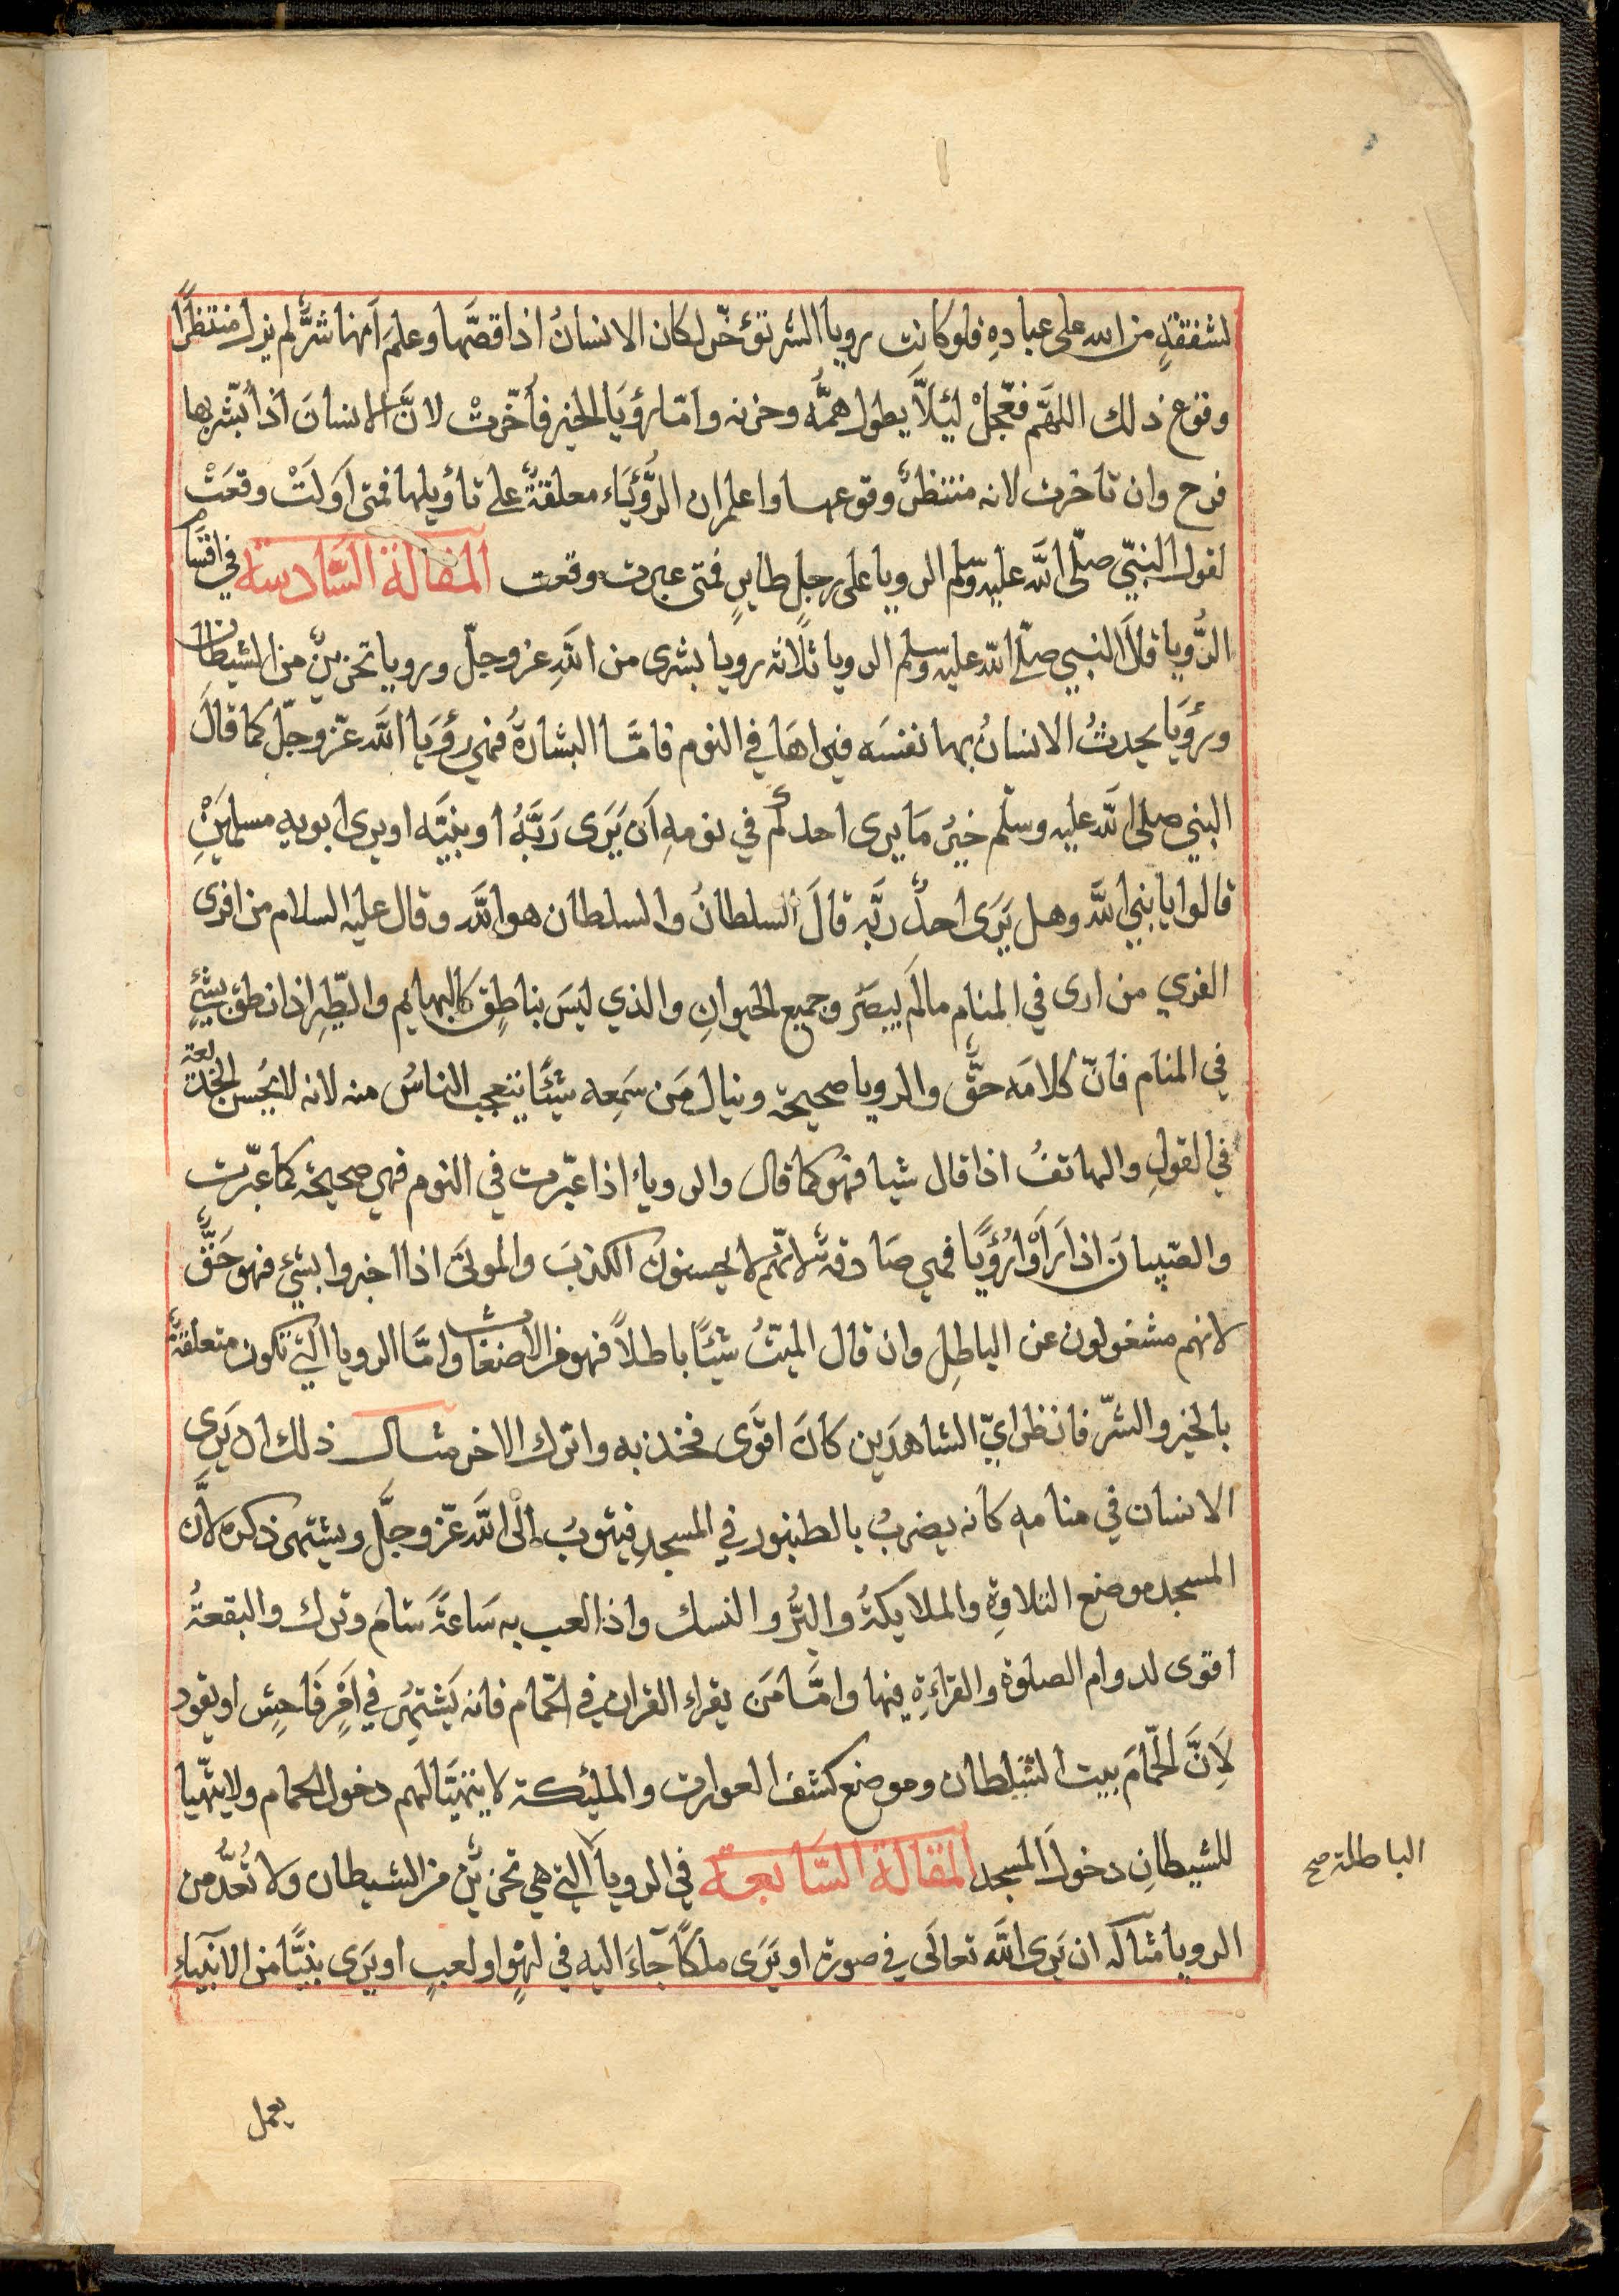 لشفقةٍ من الله على عبادهِ فلو كانت رويا الشر تؤخّر لكان الانسانُ اذا قصَّها وعلمَ اَنها شرٌّ لم يزل منتظرًا
وقوع ذلك اللهَّم فعّجلْ ليئلاَّ يطول همُّه وحزنه وامّا رؤيَا الخير فاُخّرتْ لانَّ الانسانَ اذا بُشّر بها
فرح وان تاخرت لانه منتظرٌ وقوعها واعلم ان الرُّؤيَاء معلقةٌ على تاؤيلها فمتى اَولَتْ وقعَتْ
لقول النبيّ صلّى اللَّه عليه وسلّم الرويا على رجلِ طايرٍ فمتى عبرت وقعت المقالة السَّادسة في اقسَام
الرُّويا قالَ النبي صلّى اللّه عليه وسلم الرويا ثلاثه رويا بشرى من اللَّهِ عز وجلّ ورويا تحزينٌ من الشيطان
ورؤيَا يحدثُ الانسانُ بها نفسَه فيراهَا في النوم فامَّا البشارةُ فهي رؤيَا اللَّه عزّ وجلّ كما قالَ
النبي صلى اللَّه عليه وسلّم خيرُ مَا يرى احدكُم في نومهِ اَن يَرَى رَبَّهُ او نبيَّه او يرى ابويه مسلمَينِ
قالوا يا نبي اللَّه وهل يَرَى احدٌ ربَّه قالَ السلطانُ والسلطان هو اللَّه وقال عليه السلام من افرى
الفري من ارى في المنام ما لم يبصَر وجميع الحيوانِ والذي ليسَ بناطِق كالبهايم والطّيرِ اذا نطق بشيءٍ
في المنام فانّ كلامَه حقٌّ والرويا صحيحة وينال مَن سَمِعه شيئًا يتعجب الناسُ منه لانه لا يُحسن الخديعة
في القولِ والهاتفُ اذا قال شيا فهو كما قال والروياء اذا عبّرت في النوم فهي صحيحة كما عبّرت
والصّبيانَ اذا رَاَوْا رُؤيًا فهي صَادقة لانّهم لا يحسنون الكذبَ والموتَى اذا اخبروا بشيءٍ فهو حَقٌّ
لانهم مشغولون عن الباطِلِ وان قال الميّتُ شيئًا باطلاً فهو من الاضغاث وامَّا الرويا التي تكون متعلقةٌ
بالخير والشرّ فانظر ايّ الشاهدَين كانَ اقوَى فخذ به واترك الاخر مثال ذلك ان يَرى
الانسان في منامه كانه يضربُ بالطنبور في المسجدِ فيتوبُ الى اللَّه عزّ وجلَّ ويشتهى ذكره لاَنَّ
المسجد موضع التلاوةِ والملايكةُ والبرُّ والنسك واذا لعب به سَاعَةً سَامَ وترك والبقعةُ
اقوى لدوام الصلوة والقراءةِ فيها وامَّا مَن يقراء القران في الحّمام فانه يَشتهرُ في اَمرٍ فَاحِشٍ او يقود
لاَِنَّ الحّمامَ بيت الشيطان وموضع كشف العوارت والمليئكة لا يتهيّا لهم دخول الحمام ولا يتهّيا
للشيطانِ دخول المسجد المقالة السَّابعة في الرويا التي هي تحزينٌ من الشيطان ولا تُعدُّ من
الباطلة صح
الرويا مثاله ان يَرى اللَّه تعالَى في صورة او يَرَى ملكًا جآءَ اليه في لهوٍ او لعبٍ او يَرَى نبيًّا من الانبيَاءِ
يعمل